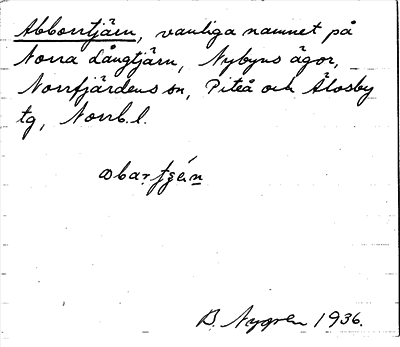 Abborrtjärn, vanliga namnet på
Norra Långtjärn, Nybyns ägor,
Norrfjärdens sn, Piteå och Älvsby
tg, Norrb. l.
B. Nygren 1936.